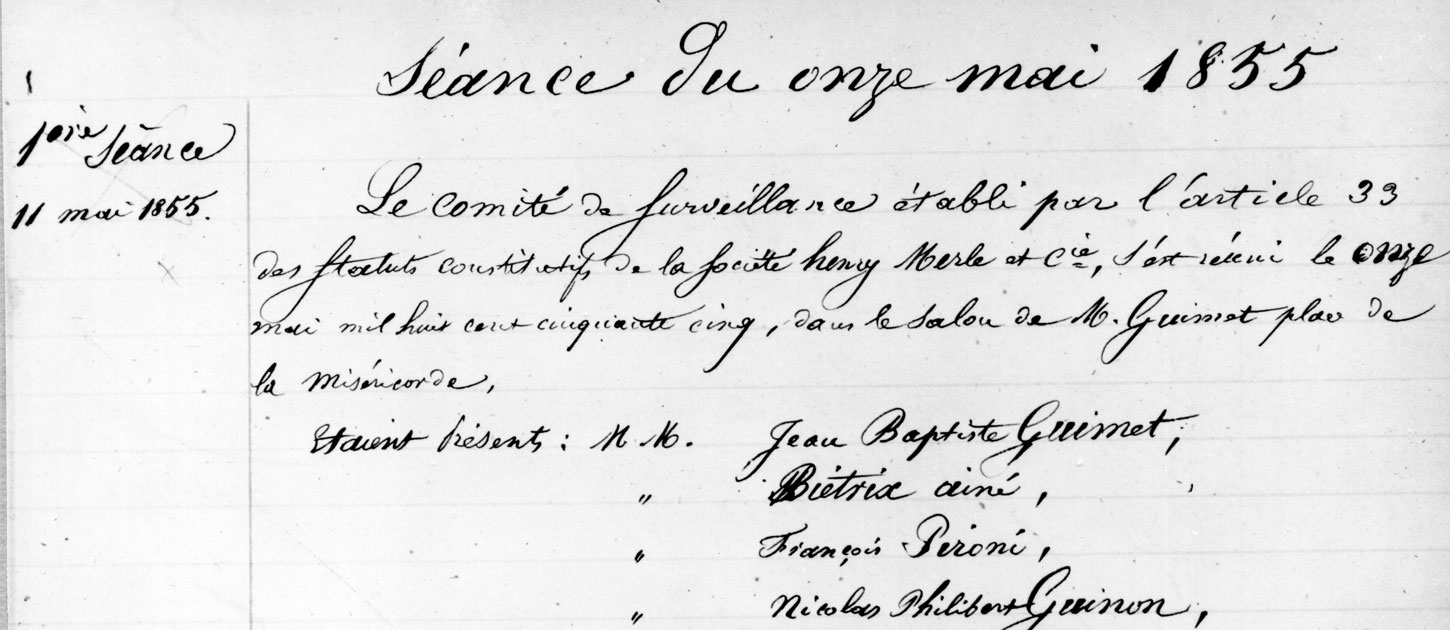 Séance du onze mai 1855
1
1ère Séance
11 mai 1855.
Le comité de surveillance établi par l'article 33
des statuts constitutifs de la société henry Merle et Cie, s'est réuni le onze
mai mil huit cent cinquante cinq, dans le salon de M. Guimet place de
la miséricorde,
Etaient Présents : M. M. Jean Baptiste Guimet,
" Biétrix ainé,
" François Péroni,
" Nicolas Philibert Guinon,